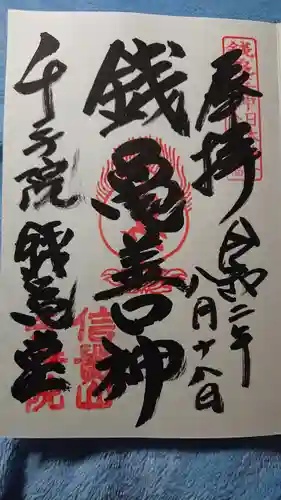 奉拝
令和二年
八月十八日
銭亀善神
千手院 銭亀堂
信貴山